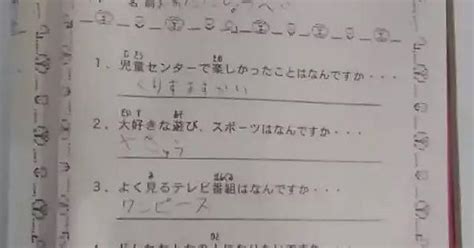 1、児童センターで楽しかったことはなんですか・・・
くりすますかい
2、大好きな遊び、スポーツはなんですか・・・
やきゅう
3、よく見るテレビ番組はなんですか・・・
ワンピース